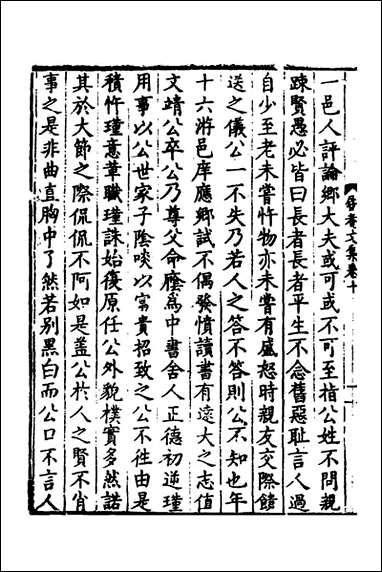 一邑人評論鄉大夫或可或不可至指公姓不問親
踈賢愚必皆曰長者長者平生不念舊惡恥言人過
自少至老未嘗忤物亦未嘗有盛怒時親友交際餽
送之儀公一不失乃若人之答不答則公不知也年
十六游邑庠應鄉試不偶發憤讀書有遠大之志值
文靖公卒公乃尊父命廕為中書舍人正德初逆瑾
用事以公世家子陰啖以富貴招致之公不往由是
積忤瑾意革職瑾誅始復原任公外貌樸實多然諾
其於大節之際侃侃不阿如是蓋公於人之賢不肖
事之是非曲直胸中了然若別黑白而公口不言人
文集卷十